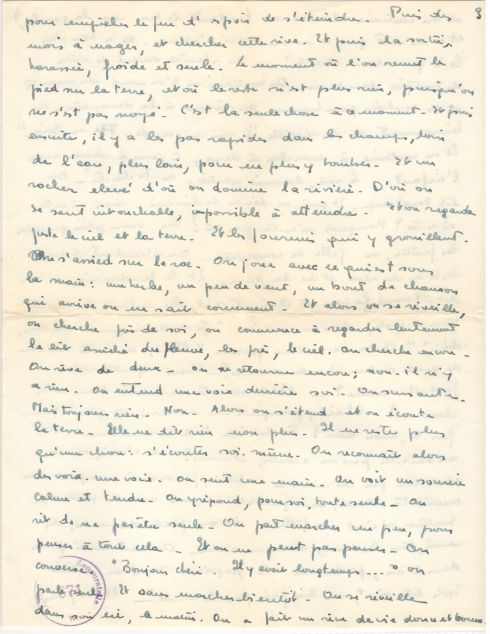 3
pour empêcher le feu d'espoir de s'éteindre. Puis des
mois à nager, et chercher cette rive. Et puis la sortie,
harassée, froide et seule. Le moment où l'on remet les
pied sur la terre, et où le reste n'est plus rien, puisqu'on
ne s'est pas noyé. C'est la seule chose à ce moment. Et puis
ensuite, il y a les pas rapides dans les champs, loin
de l'eau, plus loin, pour ne plus y tomber. Et un
rocher élevé d'où on domine la rivière. D'où on
se sent intouchable, impossible à atteindre. Et on regarde
juste le ciel et la terre. Et les fourmis qui y grouillent.
On s'assied sur le roc. On joue avec ce qui est sous
la main : une herbe, un peu de vent, un bout de chanson
qui arrive on ne sait comment. Et alors on se réveille,
on cherche près de soi, on commence à regarder lentement
le lit du fleuve, les prés, le ciel. On cherche encore.
On rêve de deux. On se retourne encore ; non. il n'y
a rien. On entend une voix derrière soi. On sursaute.
Mais toujours rien. Non. Alors on s'étend et on écoute
la terre. Elle ne dit rien non plus. Il ne reste plus
qu'une chose : s'écouter soi-même. On reconnaît alors
des voix. une voix. On sent une main. On voit un sourire
calme et tendre. On y répond, pour soi, toute seule. On
rit de ne pas être seule. On part marcher un peu, pour
penser à tout cela. Et on ne peut pas penser. On
converse. "Bonjour chéri. Il y avait longtemps...." on
parle seule. Et sans marcher bientôt. On se réveille
dans son lit, le matin. On a fait un rêve de vie donné et bonne